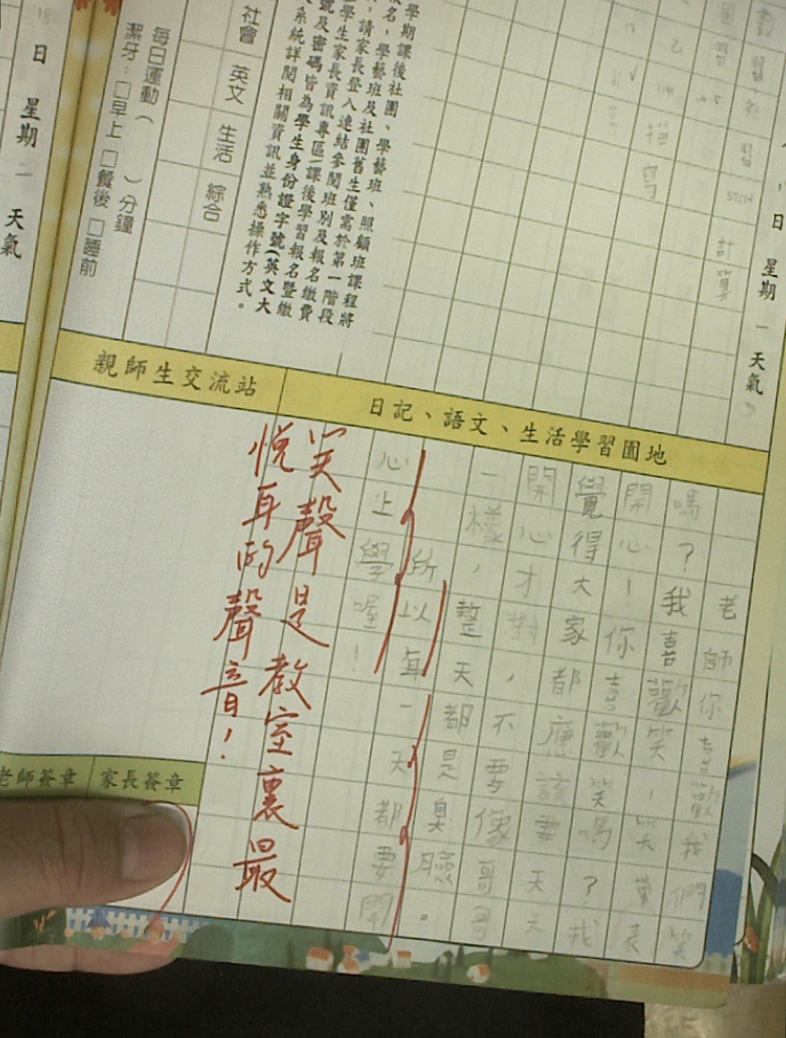 日 星期一 天氣
描寫
計算
學期課後社團、學藝班、照顧班課程將
名，學藝班及社團舊生僅需於第一階段
，請家長登入連結參閱班別及報名繳費
學生家長資訊專區/課後學習報名暨繳
號及密碼皆為學生身份證字號(英文大
系統詳閱相關資訊並熟悉操作方式。
社會 英文 生活 綜合
每日運動（ ）分鐘
潔牙：□早上 □餐後 □睡前
日 星期二 天氣
日記、語文、生活學習園地
親師生交流站
老師你喜歡我們笑
嗎？我喜歡笑，笑代表
開心！你喜歡笑嗎？我
覺得大家都應該要天天
開心才對，不要像哥哥
一樣，整天都是臭臉。
所以每一天都要開
心上學喔！
笑聲是教室裏最
悅耳的聲音！
老師簽章
家長簽章